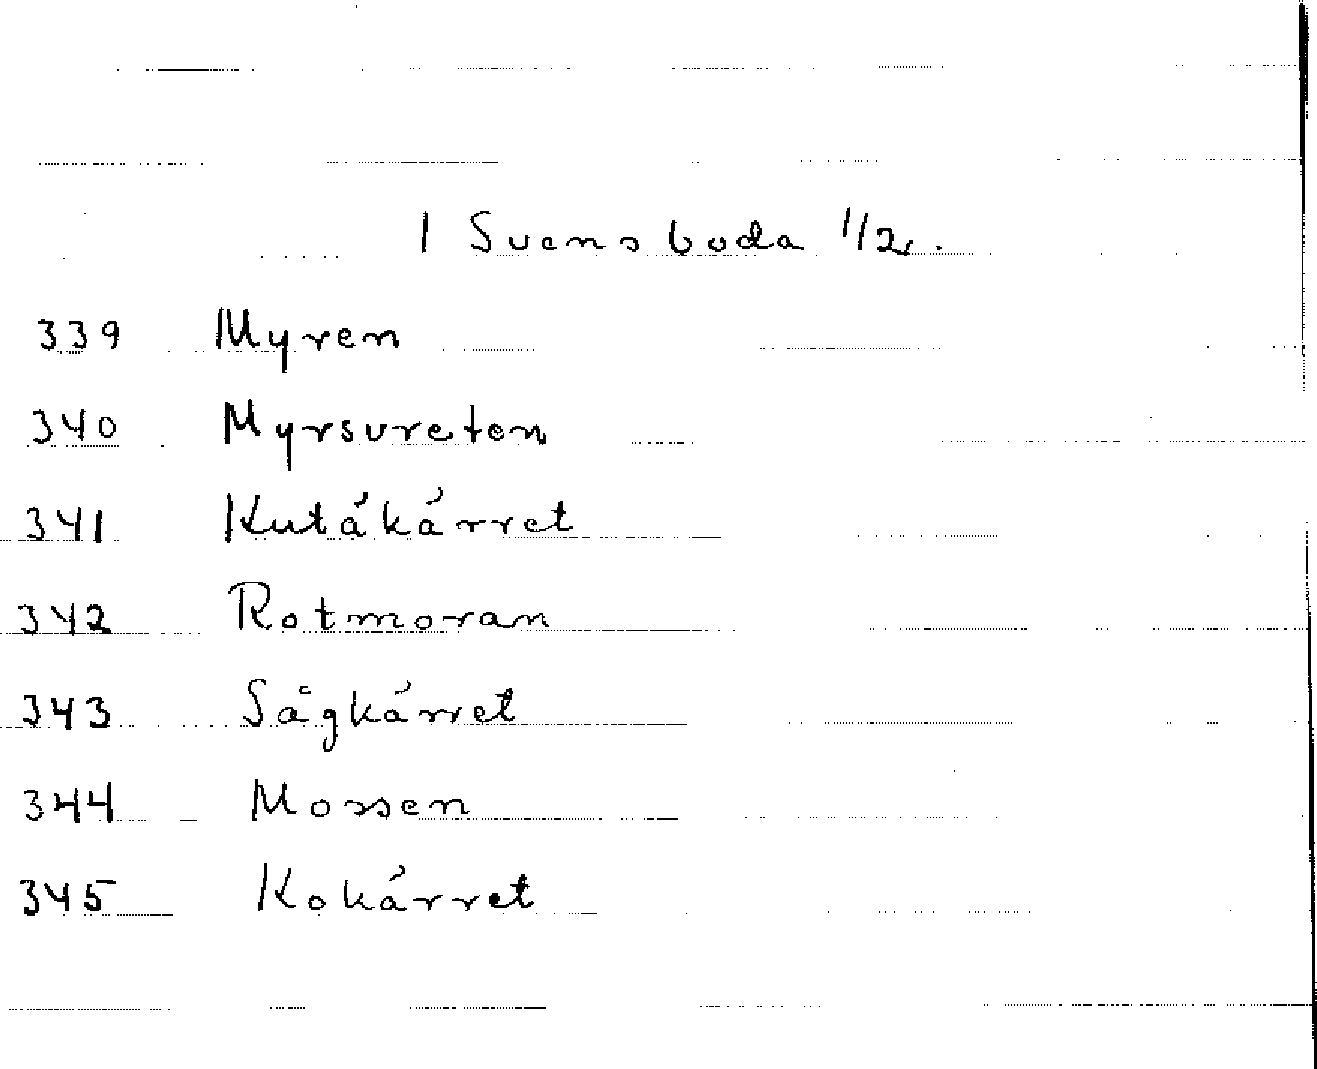 I Svensboda 1/2.
339 Myren
340 Myrsvreten
341 Kutäkärret
342 Rotmoran
343 Sågkärret
344 Mossen
345 Kokärret